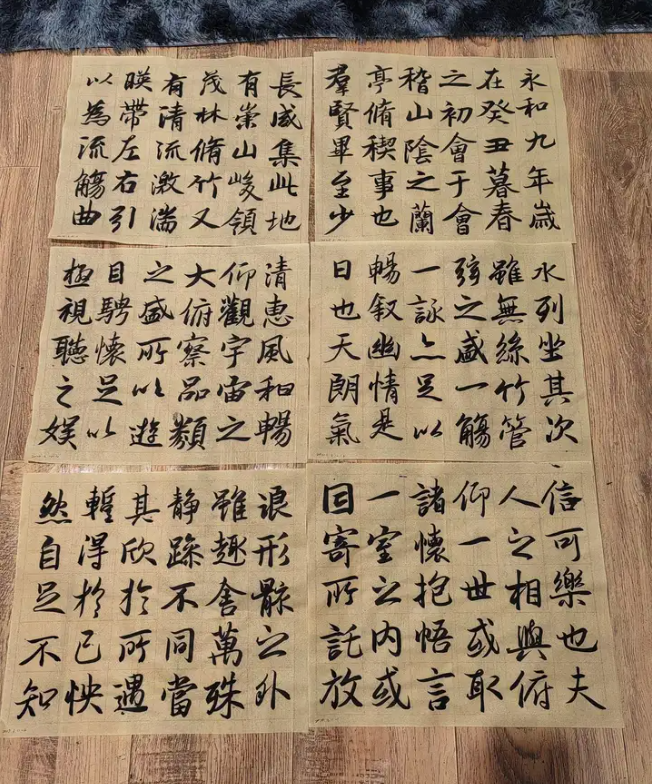 永和九年歲
在癸丑暮春
之初會于會
稽山陰之蘭
亭脩稧事也
羣賢畢至少
長咸集此地
有崇山峻領
茂林脩竹又
有清流激湍
暎帶左右引
以為流觴曲
水列坐其次
雖無絲竹管
弦之盛一觴
一詠亦足以
暢叙幽情是
日也天朗氣
清惠風和暢
仰觀宇宙之
大俯察品類
之盛所以遊
目騁懷足以
極視聽之娛
信可樂也夫
人之相與俯
仰一世或取
諸懷抱悟言
一室之內或
因寄所託放
浪形骸之外
雖趣舍萬殊
静躁不同當
其欣於所遇
暫得於己怏
然自足不知